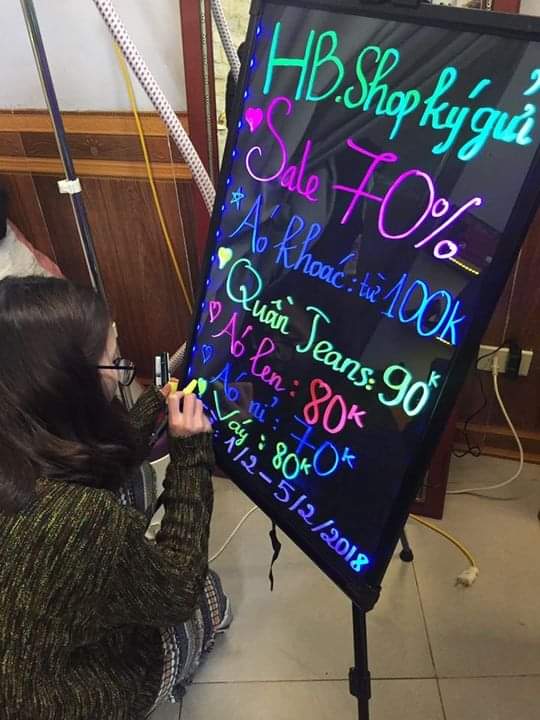 HB.Shop ký gửi
Sale 70%
Áo khoác: từ 100K
Quần Jeans: 90K
Áo len: 80K
Áo nỉ: 70K
Váy: 80K
1/2-5/2/2018